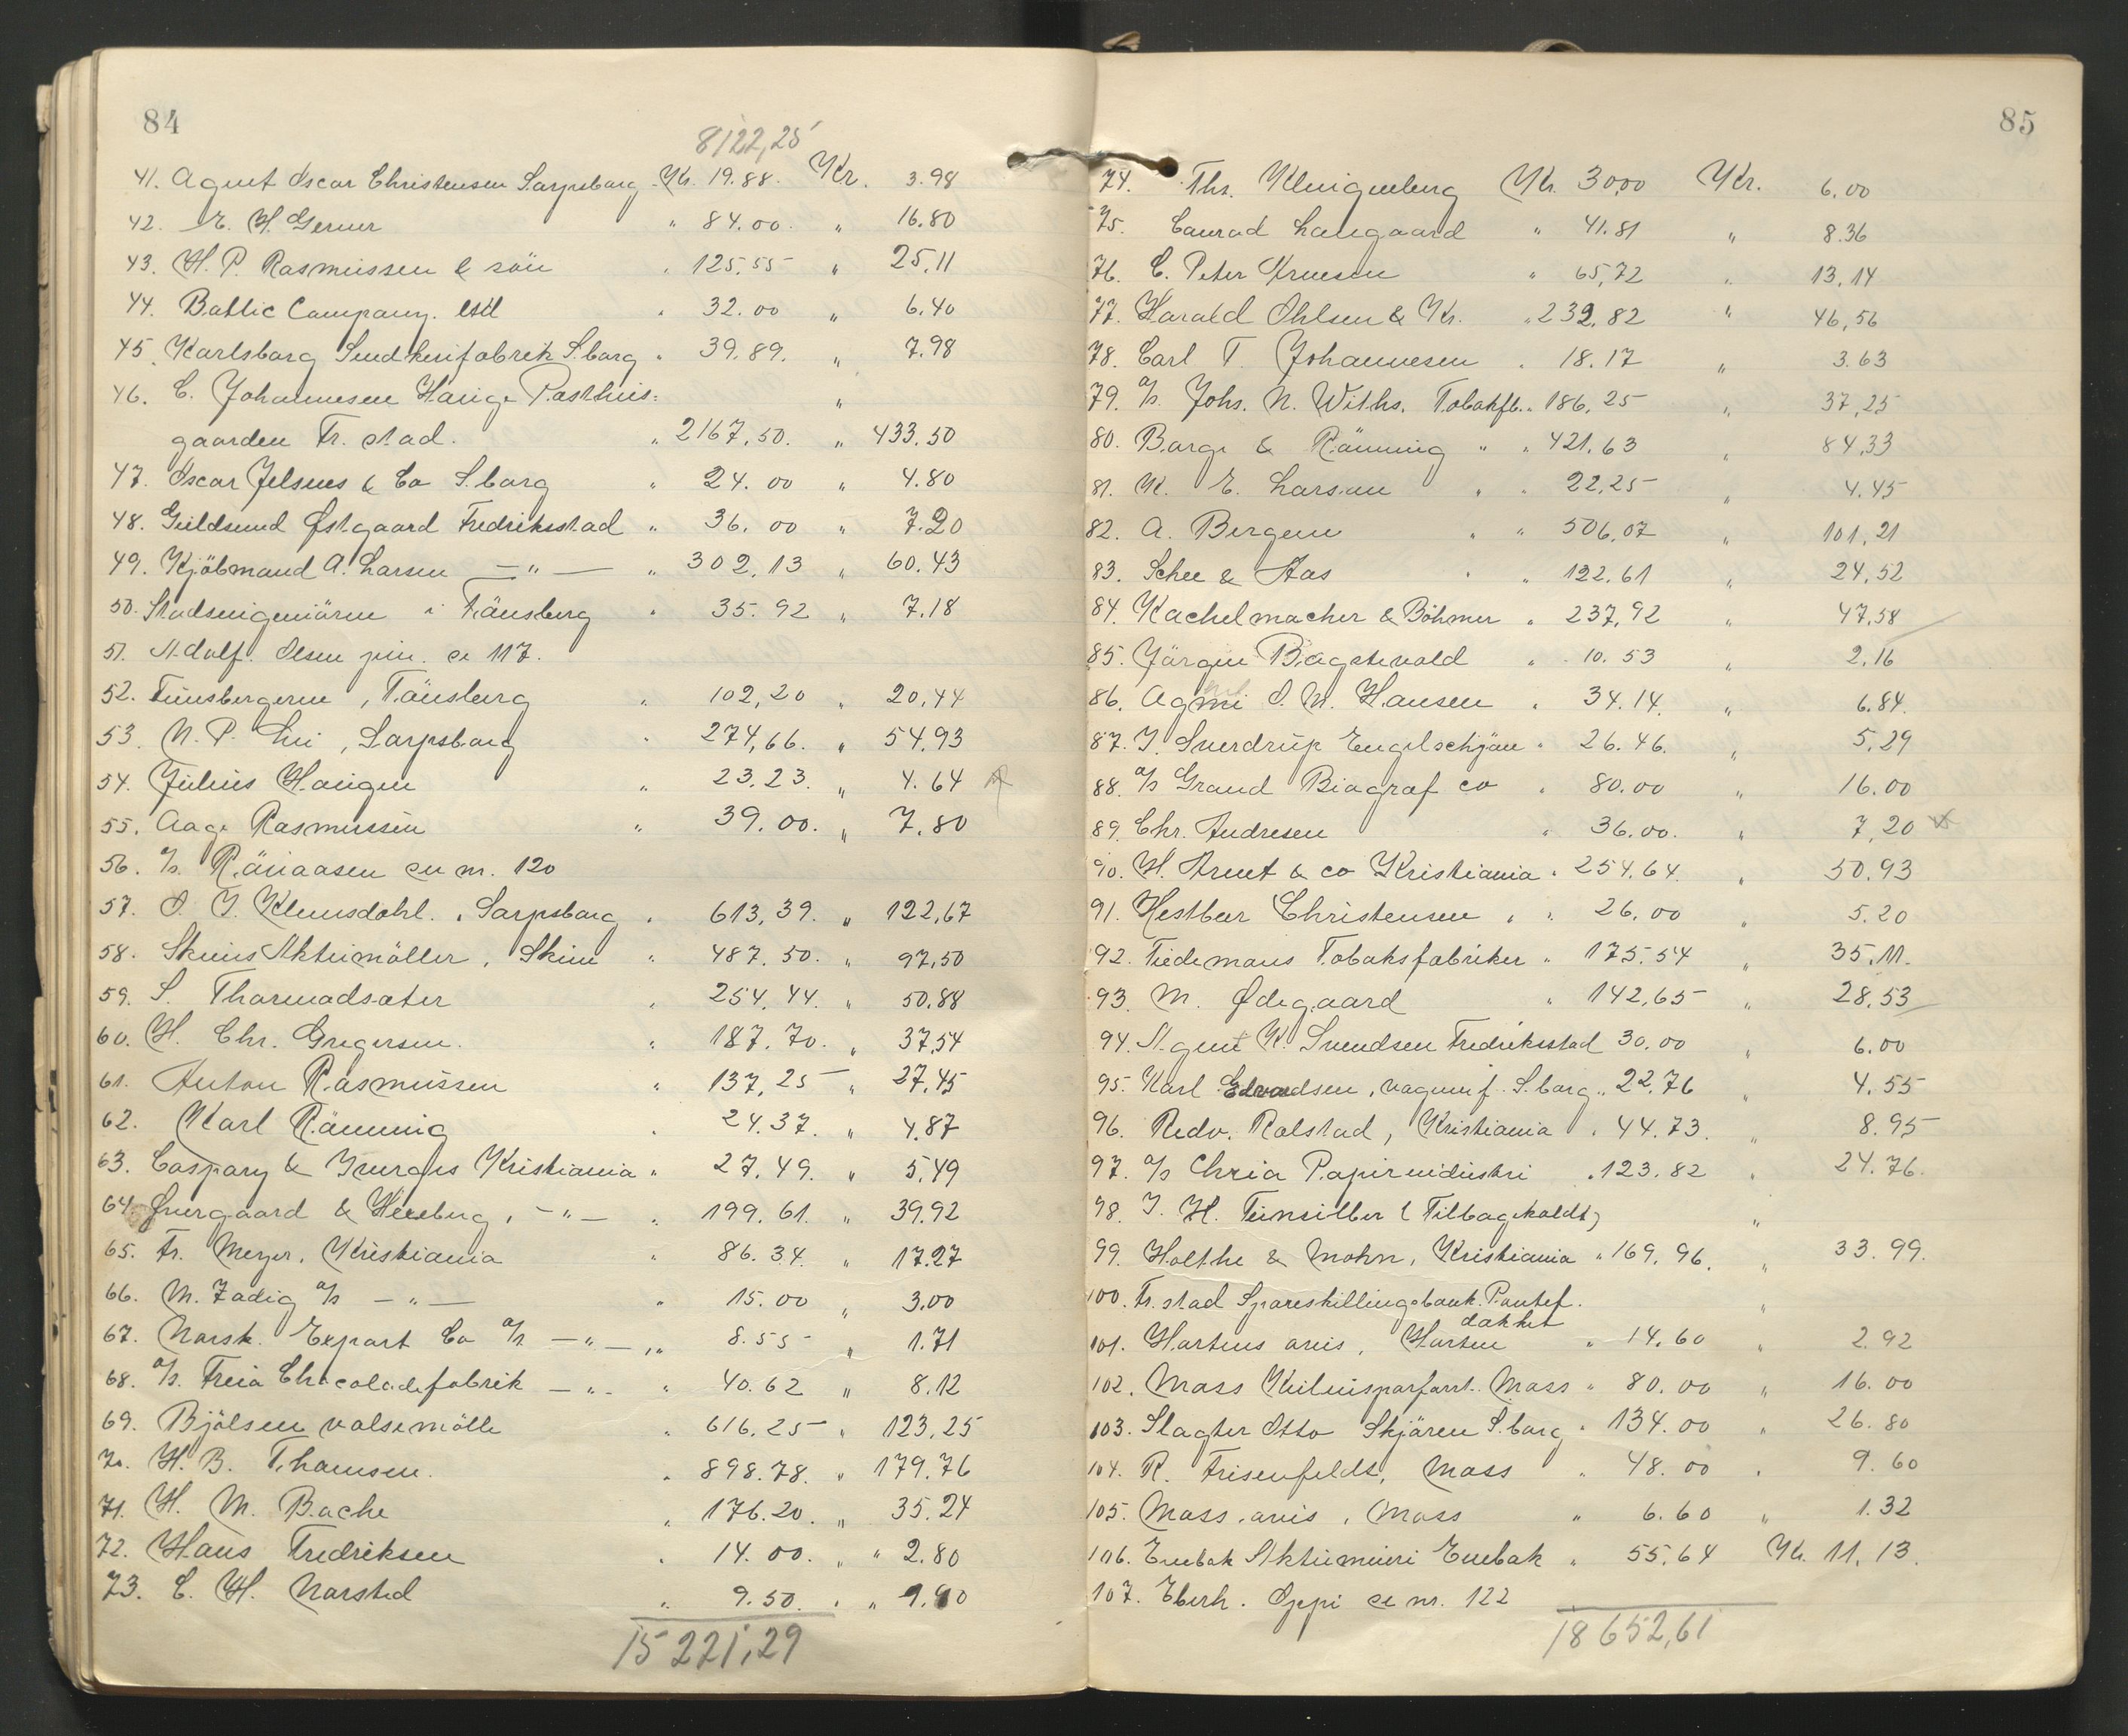 84
8122,25
41. Agent Oscar Christensen Sarpsborg Kr. 19.88. Kr. 3.98
42. E. H. Gerner " 84.00. " 16.80
43. H. P. Rasmussen & sön " 125.55 " 25.11
44. Baltic Company. Ltd " 32.00 " 6.40
45. Karlsborg S.borg " 39.89. " 7.98
46. C. Johannesen Posthus- "
gaarden Fr.stad. " 2167.50. " 433.50
47. Oscar Jelsnes & Co S.borg " 24.00 " 4.80
48. Guldsmed Østgaard Fredriksstad " 36.00 " 7.20
49. Kjöbmand A. Larsen — " — " 302.13 " 60.43
50. Stadsingeniören i Tönsberg " 35.92 " 7.18
51. Adolf. Olsen jun. se 117.
52. Tunsbergeren, Tönsberg " 102,20 " 20,44
53. N. P. Lie, Sarpsborg " 274,66. " 54,93
54. Julius Haugen " 23.23. " 4.64
55. Aage Rasmussen " 39.00. " 7.80
56. a/s. Rönaasen se nr. 120
57. O. J. Klemsdahl. Sarpsborg " 613,39. " 122,67
58. Skiens Aktiemöller, Skien " 487.50. " 97,50
59. S. Thormodsæter " 254.44. " 50.88
60. H. Chr. Gregersen. " 187.70. " 37,54
61. Anton Rasmussen " 137,25 " 27.45
62. Karl Rönning " 24.37. " 4.87
63. Caspary & Kristiania " 27.49. " 5.49
64. Øvergaard & — " — " 199.61. " 39.92
65. Fr. Meyer, Kristiania " 86.34. " 17.27
66. M. Zadig a/s — " — " 15.00 " 3.00
67. Norsk. Export Co a/s — " — " 8.55 " 1.71
68. a/s. Freia Chocoladefabrik — " — " 40.62 " 8.12
69. Bjölsen valsemölle " 616.25 " 123.25
70. H. B. Thomsen. " 898.78. " 179.76
71. H. M. Bache " 176.20. " 35.24
72. Hans Fredriksen " 14.00. " " 2.80
73. C. H. Norsted " 9.50. " " 1.90
15221,29
85
74. Ths. Klingenberg Kr. 30,00 Kr. 6.00
75. Conrad Langaard " 41.81 " 8.36
76. C. Peter Arnesen " 65,72 " 13,14
77. Harald Ohlsen & Kr. " 232.82 " 46,56
78. Carl T. Johannesen " 18.17 " 3.63
79. a/s. Johs. N. Withs. Tobakfb. " 186.25 " 37,25
80. Borge & Rönning " " 421.63 " 84,33
81. K. E. Larsen " " 22,25 " 4.45
82. A. Bergene " " 506,07 " 101,21
83. Schee & Aas " " 122.61 " 24,52
84. Kachelmacher & Böhmer " 237,92 " 47,58
85. Jörgen Bogstevold " 10.53 " 2,16
86. O. M. Hansen " 34.14. " 6.84.
87. J. Sverdrup Engelschjön " 26.46. " 5.29
88. a/s Grand Biograf co " 80.00 " 16.00
89. Chr. Andresen " 36.00. " 7,20
90. H. Arent & co Kristiania " 254.64. " 50.93
91. Christensen " " 26.00 " 5.20
92. Tiedemans Tobaksfabriker " 175.54 " 35.11.
93. M. Ødegaard " 142,65 " 28.53
94. Agent K. Svendsen Fredriksstad 30.00 " 6.00
95. Karl Edvardsen, vognm f. S.borg " 22.76 " 4.55
96. Redv. Rolstad, Kristiania " 44.73. " 8.95
97. a/s Chria Papirindustri " 123.82 " 24.76.
98. J. H. Tunsilber (Tilbagekaldt) "
99. Holthe & Mohn, Kristiania " 169.96. " 33.99.
100. Fr.stad Spareskillingsbank. Pantef. "
dækket
101. Hortens avis, Horten " 14.60 " 2.92
102. Moss Moss " 80.00 " 16.00
103. Slagter Otto Skjören S.borg " 134.00 " 26.80
104. R. Frisenfeldt, Moss " 48.00 " 9.60
105. Moss avis, Moss " 6.60 " 1.32
106. Enebak Aktiemeieri Enebak " 55.64 Kr. 11,13.
107. Eberh. Oppi se nr. 122
18652,61